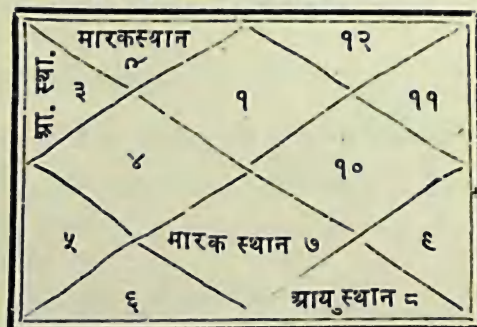 मारकस्थान
२
१२
आ. स्था.
३
१
११
४
१०
५
मारक स्थान ७
९
६
आयु स्थान ८